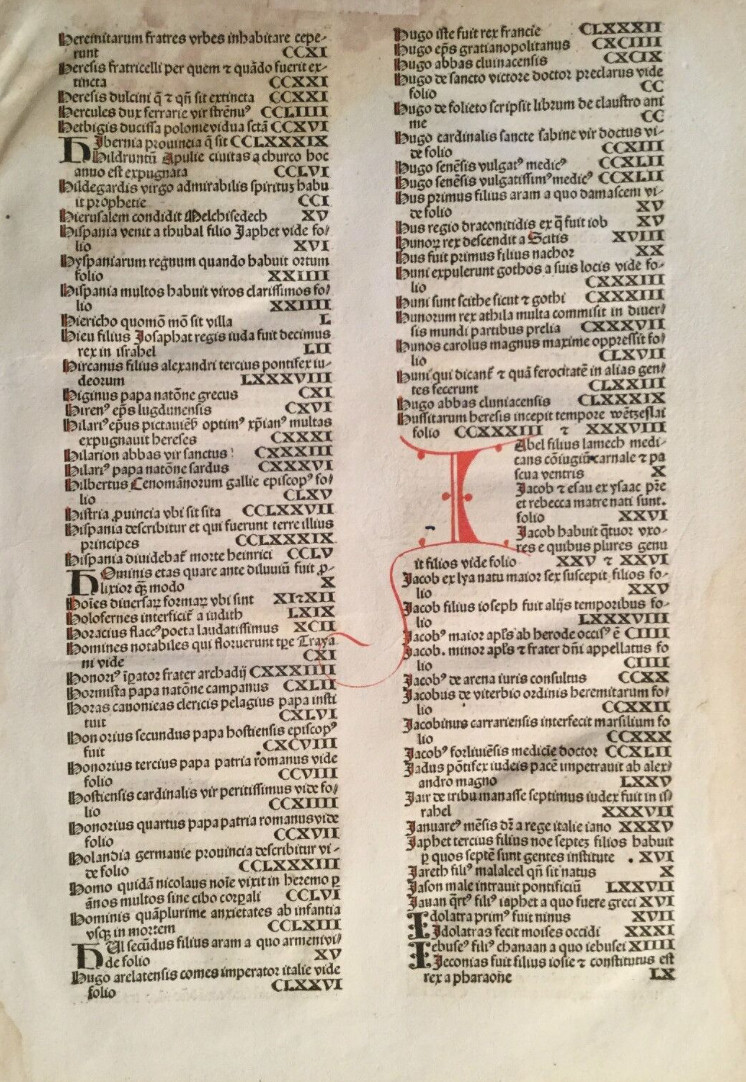 Heremitarum fratres vrbes inhabitare cepe-
runt CCXI
Heresis fratricelli per quem ⁊ quādo fuerit ex-
tincta CCXXI
Heresis dulcini q̄ ⁊ qn̄ sit extincta CCXXI
Hercules dux ferrarie vir strēnuꝰ CCLIIII
Hethigis ducissa polome vidua sctā CCXVI
HIbernia prouincia q̄ sit CCLXXXIX
Hildruntū Apulie ciuitas a churco hoc
anno est expugnata CCLVI
Hildegardis virgo admirabilis spirituȝ habu
it prophetie CCI
Hierusalem condidit Melchisedech XV
Hispania venit a thubal filio Japhet vide fo-
lio XVI
Hyspaniarum regnum quando habuit ortum
folio XXIIII
Hispania multos habuit viros clarissimos fo-
lio XXIIII
Hiericho quomō mō sit villa L
Hieu filius Josaphat regis iuda fuit decimus
rex in israhel LII
Hircanus filius alexandri tercius pontifex iu-
deorum LXXXVIII
Higinus papa natōne grecus CXI
Hirenꝰ ep̄s lugdunensis CXVI
Hilariꝰ ep̄us pictauieñ optimꝰ xp̄ianꝰ multas
expugnauit hereses CXXXI
Hilarion abbas vir sanctus CXXXIII
Hilariꝰ papa natōne sardus CXXXVI
Hilbertus Cenomānorum gallie episcopꝰ fo-
lio CLXV
Histria ꝓuincia vbi sit sita CCLXXVII
Hispania describitur et qui fuerunt terre illius
principes CCLXXXIX
Hispania diuidebat̄ morte heinrici CCLV
HOminis etas quare ante diluuiū fuit ꝓ-
lixior qꝫ modo X
Hoīes diuersaꝝ formaꝝ vbi sint XI⁊XII
Holofernes interficit̄ a iudith LXIX
Horacius flaccꝰ poeta laudatissimus XCII
Homines notabiles qui floruerunt tp̄e Traya
ni vide CXI
Honoriꝰ īꝑator frater archadij CXXXIIII
Hormista papa natōne campanus CXLII
Horas canonicas clericis pelagius papa insti
tuit CXLVI
Honorius secundus papa hostiensis episcopꝰ
fuit CXCVIII
Honorius tercius papa patria romanus vide
folio CCVIII
Hostiensis cardinalis vir peritissimus vide fo-
lio CCXIIII
Honorius quartus papa patria romanus vide
folio CCXVII
Holandia germanie prouincia describitur vi-
de folio CCLXXXIII
Homo quidā nicolaus noīe vixit in heremo ꝑ
ānos multos sine cibo corp̄ali CCLVI
Hominis quāplurime anxietates ab infantia
vsqꝫ in mortem CCLXIII
HUl secūdus filius aram a quo armeni vi-
de folio XV
Hugo arelatensis comes imperator italie vide
folio CLXXVI
Hugo iste fuit rex francie CLXXXII
Hugo ep̄s gratianopolitanus CXCIIII
Hugo abbas cluinacensis CXCIX
Hugo de sancto victore doctor preclarus vide
folio CC
Hugo de folieto scripsit librum de claustro ani
me CC
Hugo cardinalis sancte sabine vir doctus vi-
de folio CCXIII
Hugo senēsis vulgatꝰ medicꝰ CCXLII
Hugo senēsis vulgatissimꝰ medicꝰ CCXLII
Hus primus filius aram a quo damasceni vi-
de folio XV
Hus regio draconitidis ex q̄ fuit iob XV
Hunoꝝ rex descendit a Scitis XVIII
Hus fuit primus filius nachor XX
Huni expulerunt gothos a suis locis vide fo-
lio CXXXIII
Huni sunt scithe sicut ⁊ gothi CXXXIII
Hunorum rex athila multa commisit in diuer-
sis mundi partibus prelia CXXXVII
Hunos carolus magnus maxime oppressit fo-
lio CLXVII
Huni qui dicant̄ ⁊ quā ferocitatē in alias gen-
tes fecerunt CLXXIII
Hugo abbas cluniacensis CLXXXIX
Hussitarum heresis incepit tempore wētzeslai
folio CCXXXIII ⁊ XXXVIII
IAbel filius lamech medi-
cans cōiugiū carnale ⁊ pa
scua ventris X
Jacob ⁊ esau ex ysaac p̄re
et rebecca matre nati sunt.
folio XXVI
Jacob habuit q̄tuor vxo-
res e quibus plures genu
it filios vide folio XXV ⁊ XXVI
Jacob ex lya natu maior sex suscepit filios fo-
lio XXV
Jacob filius ioseph fuit alijs temporibus fo-
lio LXXXVIII
Jacobꝰ maior apl̄s ab herode occisꝰ ē CIIII
Jacob. minor apl̄s ⁊ frater dn̄i appellatus fo
lio CIIII
Jacobꝰ de arena iuris consultus CCXX
Jacobus de viterbio ordinis heremitarum fo
lio CCXXII
Jacobinus carrariensis interfecit marsilium fo
lio CCXXX
Jacobꝰ forliuiēsis medicīe doctor CCXLII
Jadus pōtifex iudeis pacē impetrauit ab alex-
andro magno LXXV
Jair de tribu manasse septimus iudex fuit in is-
rahel XXXVII
Januareꝰ mēsis dr̄ a rege italie iano XXXV
Japhet tercius filius noe septeȝ filios habuit
ꝑ quos septē sunt gentes institute . XVI
Jareth filiꝰ malaleel qn̄ sit natus X
Jason male intrauit pontificiū LXXVII
Jauan q̄rtꝰ filiꝰ iaphet a quo fuere greci XVI
Idolatra primꝰ fuit ninus XVII
Idolatras fecit moises occidi XXXI
Iebuseꝰ filiꝰ chanaan a quo iebusei XIIII
Jeconias fuit filius iosie ⁊ constitutus est
rex a pharaone LX